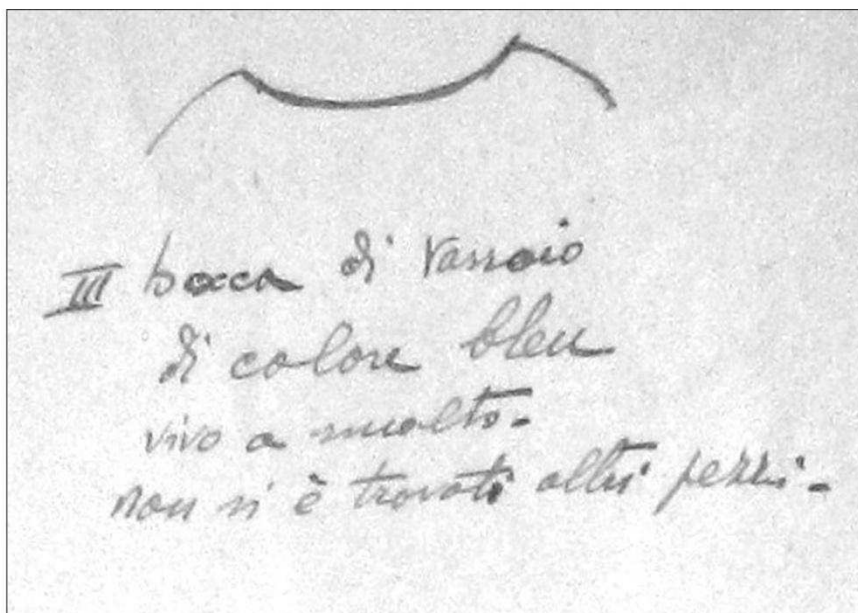 III bocca di vassoio
di colore bleu
vivo a smalto-
non si è trovati altri pezzi-